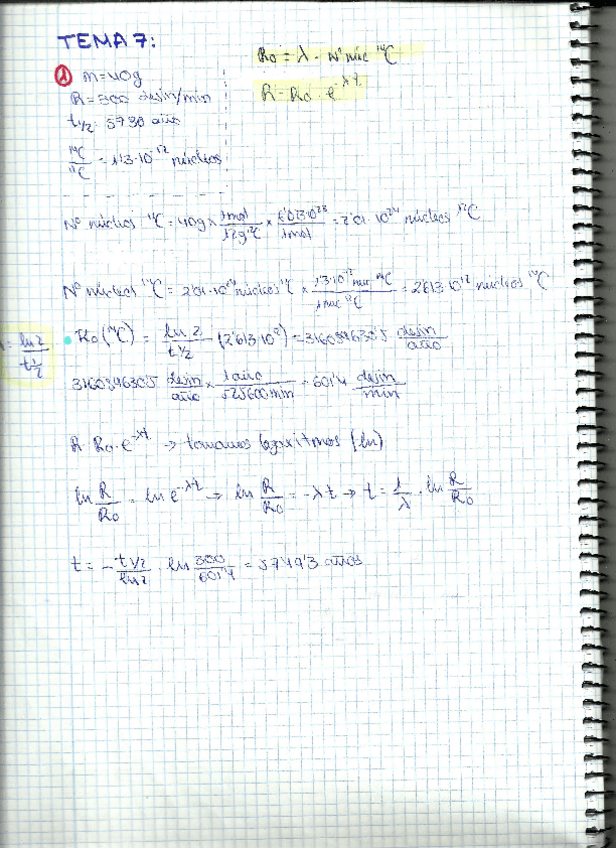 TEMA 7:
R₀ = λ · Nº núc ¹⁴C
① m = 40g
R = R₀ · e^-λt
R = 300 desin/min
t½: 5730 años
¹⁴C/¹²C = 1'3·10⁻¹² núcleos
Nº núcleos ¹²C = 40g × 1mol/12g ¹²C × 6'023·10²³/1mol = 2'01·10²⁴ núcleos ¹²C
Nº núcleos ¹⁴C = 2'01·10²⁴ núcleos ¹²C × 1'3·10⁻¹² núc ¹⁴C/1 núc ¹²C = 2'613·10¹² núcleos ¹⁴C
λ = ln 2/t½
· R₀(¹⁴C) = ln 2/t½ · (2'613·10¹²) = 316089630'5 desin/año
316089630'5 desin/año × 1 año/525600 min = 601'4 desin/min
R = R₀ · e^-λt → tomamos logaritmos (ln)
ln R/R₀ = ln e^-λ·t → ln R/R₀ = -λ t → t = 1/λ · ln R/R₀
t = - t½/ln2 · ln 300/601'4 = 5749'3 años